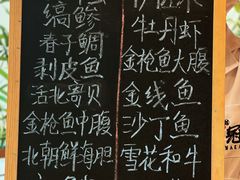 缟鲹
春子鲷
剥皮鱼
活北寄贝
金枪鱼中腹
北朝鲜海胆
牡丹虾
金枪鱼大腹
金线鱼
沙丁鱼
雪花和牛